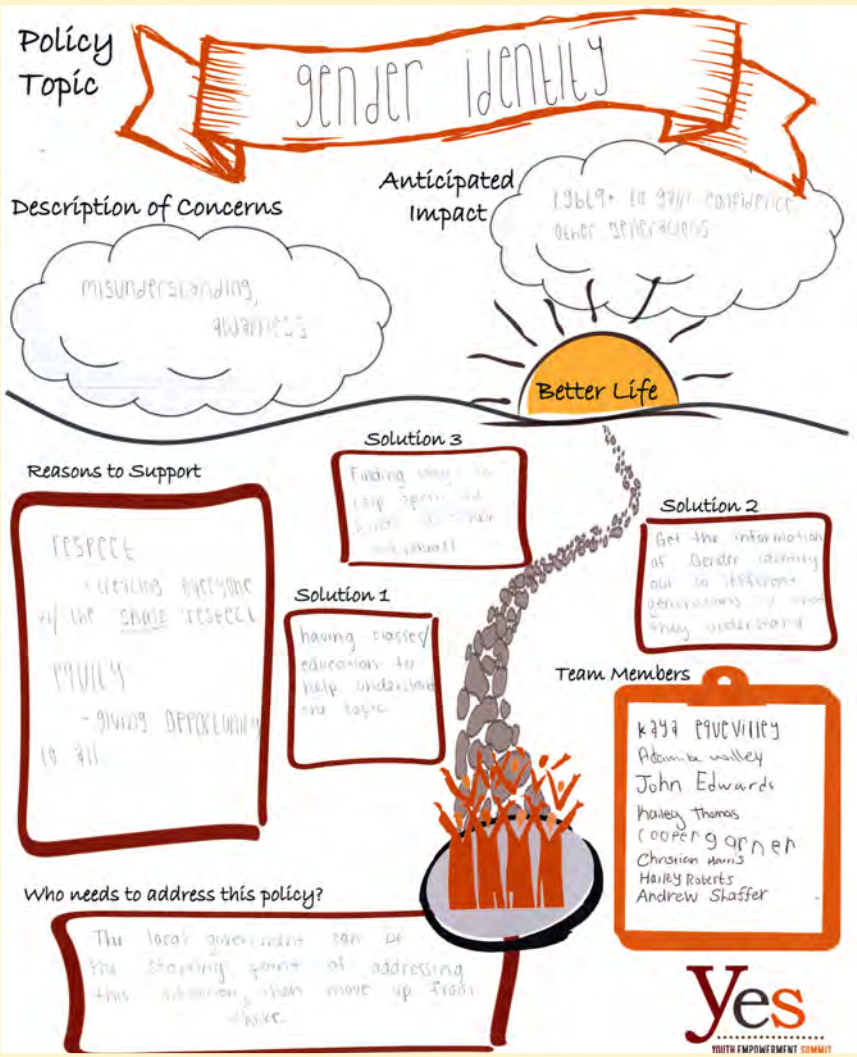 Policy
Topic
gender identity
Description of Concerns
misunderstanding,
awarness
Anticipated
Impact
Lgbtq+ to gain confidence
other generations
Better Life
Reasons to Support
respect
- treating everyone
w/ the same respect
equity
- giving opportunity
to all
Solution 3
Finding ways to
open
Solution 1
having classes/
education to
help understand
the topic
Solution 2
Get the information
of Gender identity
out to different
generations so that
they understand
Team Members
Kaya
John Edwards
Hailey Thomas
Cooper garner
Christian Harris
Hailey Roberts
Andrew Shaffer
Who needs to address this policy?
The local government can be
the starting point of addressing
this situation, then move up from
there.
yes
YOUTH EMPOWERMENT SUMMIT